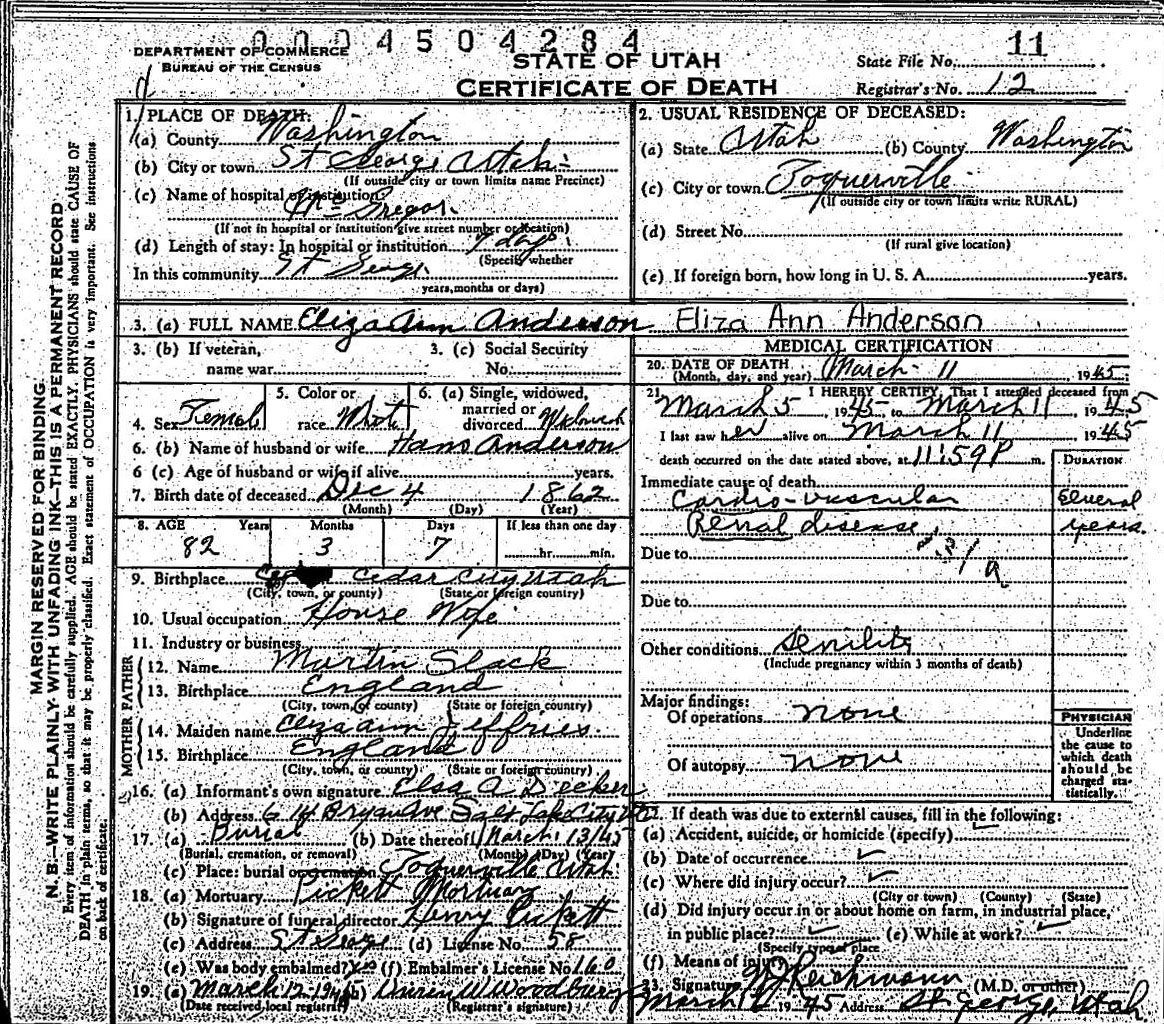 0 0 0 4 5 0 4 2 8 4
DEPARTMENT OF COMMERCE
BUREAU OF THE CENSUS
STATE OF UTAH
CERTIFICATE OF DEATH
State File No. 11
Registrar's No. 12
MARGIN RESERVED FOR BINDING
N. B.—WRITE PLAINLY WITH UNFADING INK—THIS IS A PERMANENT RECORD
Every item of information should be carefully supplied. AGE should be stated EXACTLY. PHYSICIANS should state CAUSE OF
DEATH in plain terms, so that it may be properly classified. Exact statement of OCCUPATION is very important. See instructions
on back of certificate.
1. PLACE OF DEATH:
(a) County Washington
(b) City or town St George Utah
(If outside city or town limits name Precinct)
(c) Name of hospital or institution:
Mc Gregor
(If not in hospital or institution give street number or location)
(d) Length of stay: In hospital or institution 7 days
(Specify whether
In this community St George
years, months or days)
2. USUAL RESIDENCE OF DECEASED:
(a) State Utah (b) County Washington
(c) City or town Toquerville
(If outside city or town limits write RURAL)
(d) Street No.
(If rural give location)
(e) If foreign born, how long in U. S. A. years.
3. (a) FULL NAME Eliza Ann Anderson Eliza Ann Anderson
3. (b) If veteran,
name war
3. (c) Social Security
No.
4. Sex Female
5. Color or
race White
6. (a) Single, widowed,
married or
divorced Widowed
6. (b) Name of husband or wife Hans Anderson
6 (c) Age of husband or wife if alive years.
7. Birth date of deceased Dec 4 1862
(Month) (Day) (Year)
8. AGE Years Months Days If less than one day
82 3 7 hr. min.
9. Birthplace Cedar City Utah
(City, town, or county) (State or foreign country)
10. Usual occupation House Wife
11. Industry or business
FATHER
12. Name Martin Slack
13. Birthplace England
(City, town, or county) (State or foreign country)
MOTHER
14. Maiden name Eliza Ann Jeffries
15. Birthplace England
(City, town, or county) (State or foreign country)
16. (a) Informant's own signature Elsa A Decker
(b) Address Bryan Ave Salt Lake City
17. (a) Burial (b) Date thereof March 13/45
(Burial, cremation, or removal) (Month) (Day) (Year)
(c) Place: burial or cremation Toquerville Utah
18. (a) Mortuary Pickett Mortuary
(b) Signature of funeral director Henry Pickett
(c) Address St George (d) License No. 58
(e) Was body embalmed? yes (f) Embalmer's License No. 160
19. (a) March 12-1945 (b) Woodbury
(Date received local registrar) (Registrar's signature)
MEDICAL CERTIFICATION
20. DATE OF DEATH March 11 1945
(Month, day, and year)
21. I HEREBY CERTIFY, That I attended deceased from
March 5, 1945 to March 11, 1945
I last saw her alive on March 11 1945
death occurred on the date stated above, at 11:59 P m.
DURATION
Immediate cause of death
Cardio-vascular
Renal disease
Several
years.
131 a
Due to
Due to
Other conditions Senility
(Include pregnancy within 3 months of death)
Major findings:
Of operations none
Of autopsy none
PHYSICIAN
Underline
the cause to
which death
should be
charged sta-
tistically.
22. If death was due to external causes, fill in the following:
(a) Accident, suicide, or homicide (specify) ✓
(b) Date of occurrence ✓
(c) Where did injury occur? ✓
(City or town) (County) (State)
(d) Did injury occur in or about home on farm, in industrial place,
in public place? ✓ (e) While at work? ✓
(Specify type of place
(f) Means of injury
23. Signature Reichmann (M.D. or other)
March 12 1945 Address St George, Utah